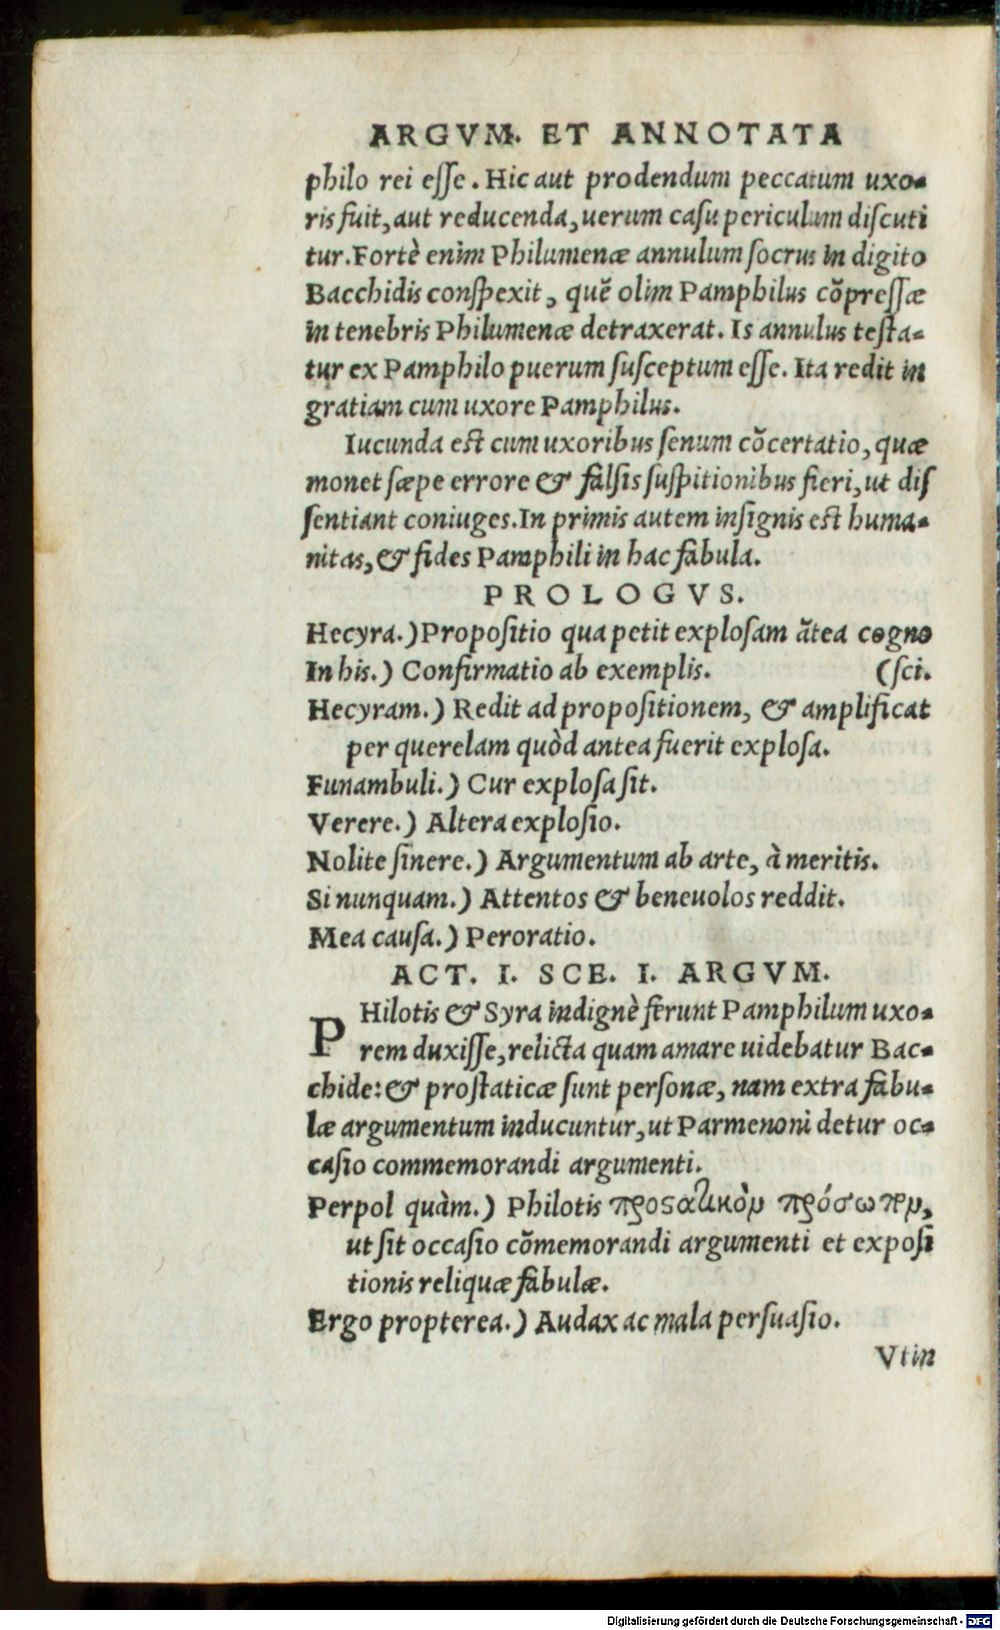 ARGVM. ET ANNOTATA
philo rei esse. Hic aut prodendum peccatum uxo-
ris fuit, aut reducenda, uerum casu periculum discuti
tur. Fortè enim Philumenæ annulum socrus in digito
Bacchidis conspexit, quẽ olim Pamphilus cõpressæ
in tenebris Philumenæ detraxerat. Is annulus testa-
tur ex Pamphilo puerum susceptum esse. Ita redit in
gratiam cum uxore Pamphilus.
Iucunda est cum uxoribus senum cõcertatio, quæ
monet sæpe errore & falsis suspitionibus fieri, ut dis
sentiant coniuges. In primis autem insignis est huma-
nitas, & fides Pamphili in hac fabula.
PROLOGVS.
Hecyra.) Propositio qua petit explosam ãtea cogno
In his.) Confirmatio ab exemplis. (sci.
Hecyram.) Redit ad propositionem, & amplificat
per querelam quòd antea fuerit explosa.
Funambuli.) Cur explosa sit.
Verere.) Altera explosio.
Nolite sinere.) Argumentum ab arte, à meritis.
Si nunquam.) Attentos & beneuolos reddit.
Mea causa.) Peroratio.
ACT. I. SCE. I. ARGVM.
PHilotis & Syra indignè ferunt Pamphilum uxo-
rem duxisse, relicta quam amare uidebatur Bac-
chide: & prostaticæ sunt personæ, nam extra fabu-
læ argumentum inducuntur, ut Parmenoni detur oc-
casio commemorandi argumenti.
Perpol quàm.) Philotis προςατικὸν πρόσωπον,
ut sit occasio cõmemorandi argumenti et exposi
tionis reliquæ fabulæ.
Ergo propterea.) Audax ac mala persuasio.
Vtin
Digitalisierung gefördert durch die Deutsche Forschungsgemeinschaft - DFG